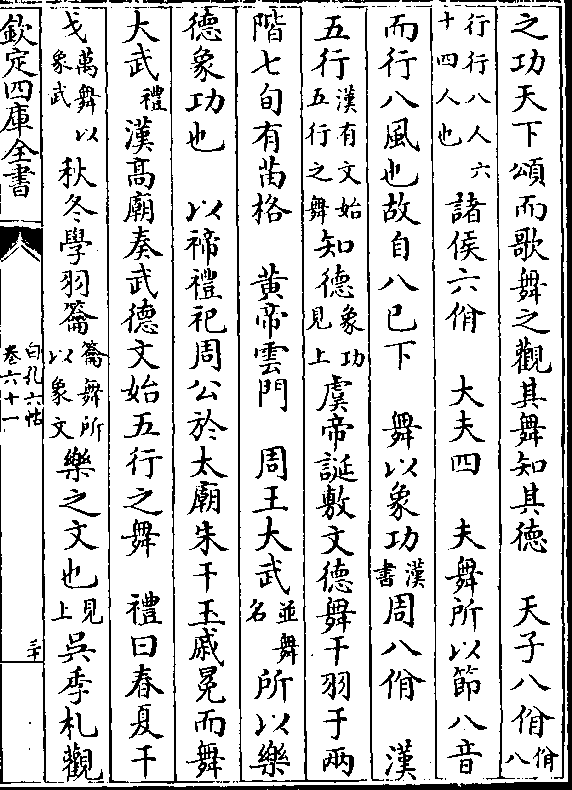 之功天下頌而歌舞之觀其舞知其德　天子八佾佾八
行行八人六十四人也諸侯六佾　大夫四　夫舞所以節八音
而行八風也故自八已下　舞以象功漢書周八佾　漢
五行漢有文始五行之舞知德象功見上虞帝誕敷文德舞干羽于兩
階七旬有苗格　黃帝雲門　周王大武並舞名所以樂
德象功也　以禘禮祀周公於太廟朱干玉戚冕而舞
大武禮漢高廟奏武德文始五行之舞　禮曰春夏干
戈萬舞以象武秋冬學羽籥籥舞所以象文樂之文也見上吳季札觀
欽定四庫全書
白孔六帖
卷六十一
三十